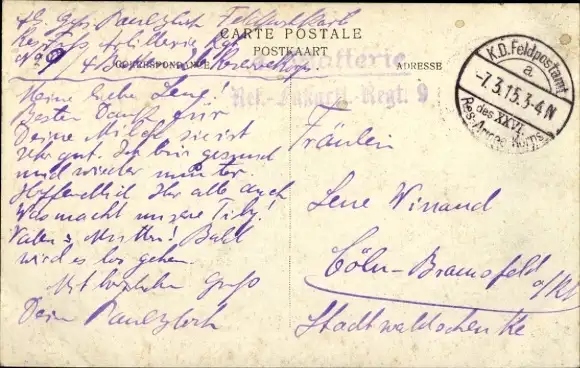 Feldpostkarte
CARTE POSTALE
POSTKAART
CORRESPONDANCE
ADRESSE
Batterie
Regt. 9
K.D. Feldpostamt
a
-7.3.15.3-4N
des XXVI.
Res.-Armee Korps
Meine liebe Leny!
Besten Dank für
Deine Milch sie ist
sehr gut. Ich bin gesund
und wieder munter.
Hoffendlich Ihr alle auch
Was macht unsere
Vater u Mutter! Bald
wird es los gehen.
Mit herzlichem Gruß
Dein
Fräulein
Lene Winand
Cöln-Braunsfeld
a/Rh
Stadtwaldschenke